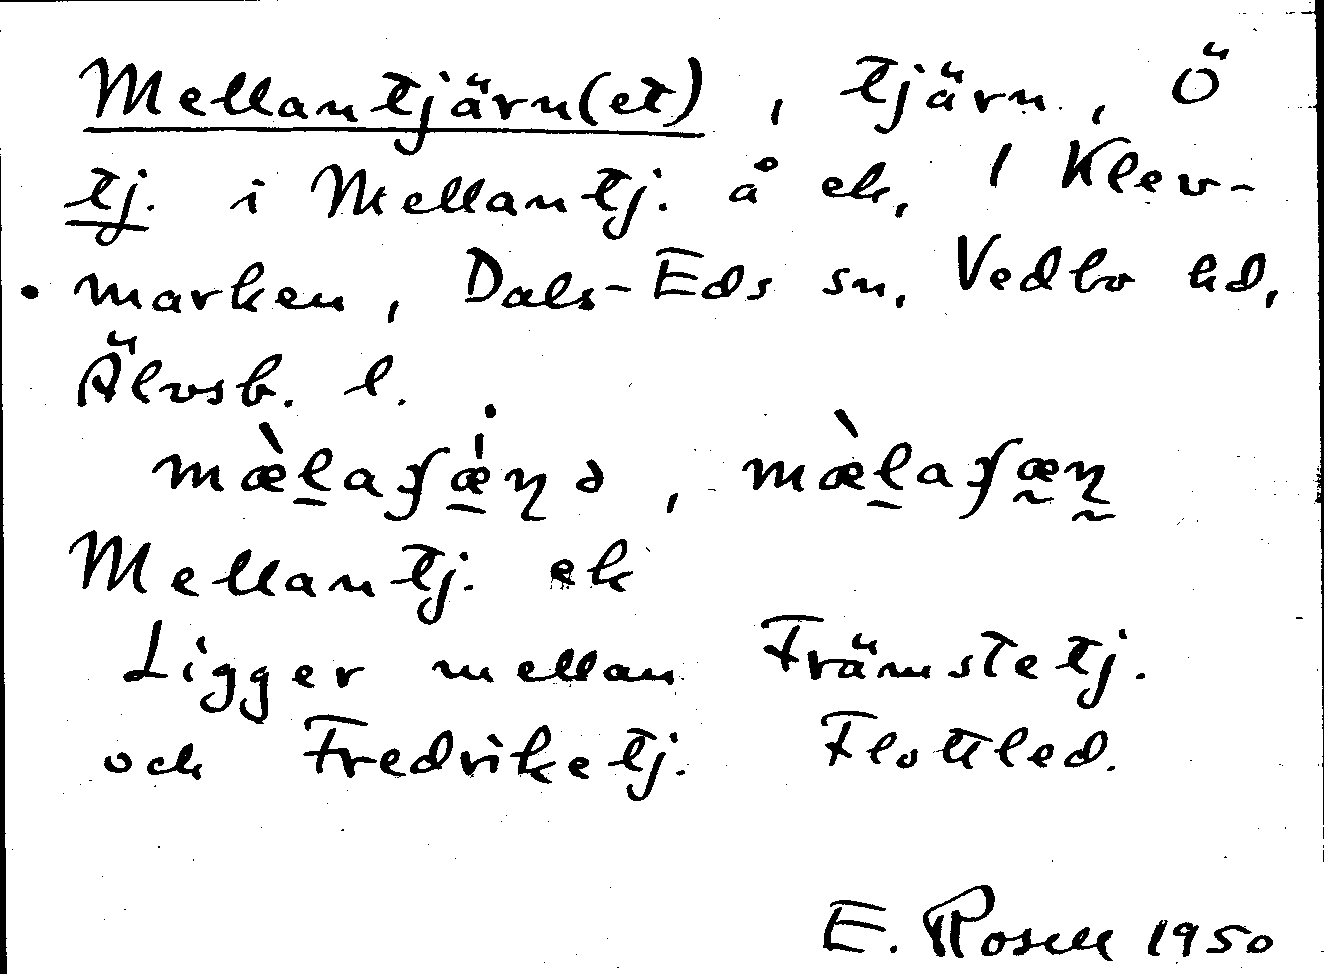 Mellantjärn(et), tjärn, Ö
tj. i Mellantj. å ek, 1 Klev-
marken, Dals-Eds sn, Vedbo hd,
Älvsb. l.
Mellantj. ek
Ligger mellan Främstetj.
och Fredriketj. Flottled.
E. Rosell 1950